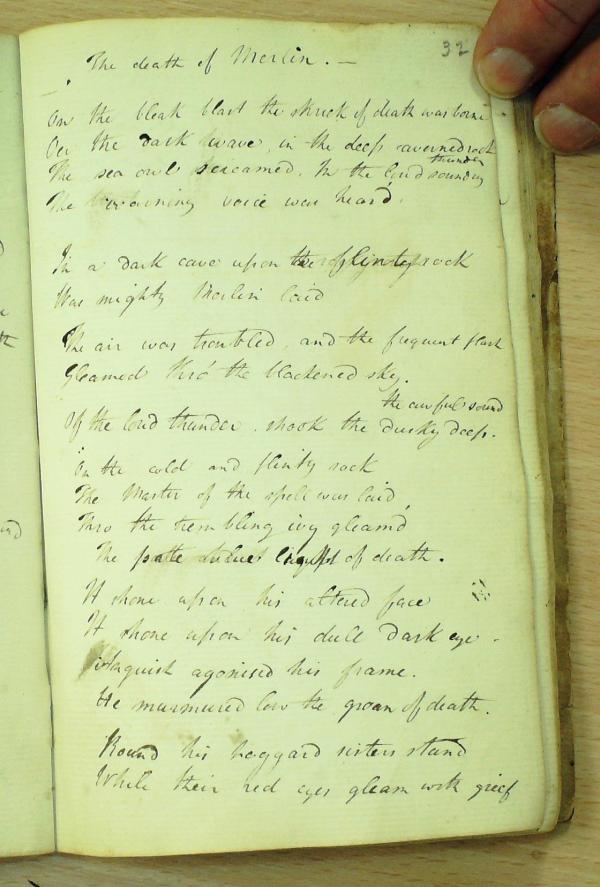 32
The death of Merlin. —
On the bleak blast the shriek of death was borne
Oer the dark wave, in the deep cavernedrock
The sea owl screamed. In the loud sounding
thunder
The warning voice was heard.
In a dark cave upon the flinty rock
Was mighty Merlin laid
The air was troubled, and the frequent flash
Gleamed thro' the blackened sky.
the awful sound
Of the loud thunder. shook the dusky deep.
On the cold and flinty rock
The Master of the spell was laid,
Thro the trembling ivy gleamd
The pale light of death.
It shone upon his altered face
It shone upon his dull dark eye -
Anguish agonised his frame.
He murmured low the groan of death.
Round his haggard sisters stand
While their red eyes gleam with grief